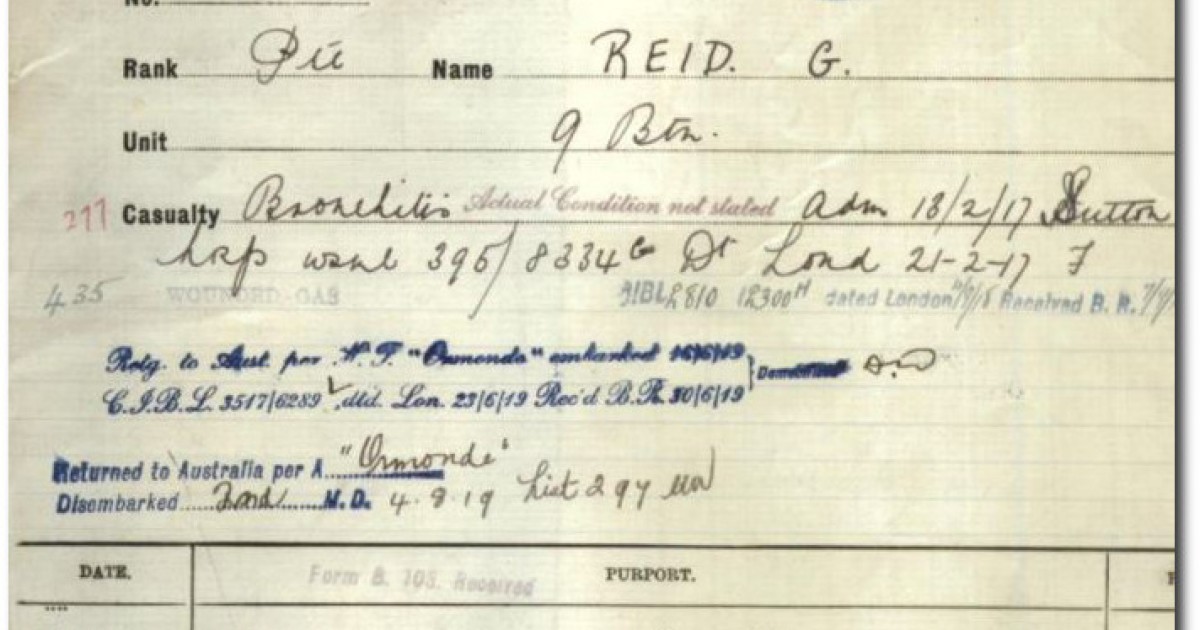 No.
Rank Pte Name REID. G.
Unit 9 Btn.
277 Casualty Bronchitis Actual Condition not stated adm 18/2/17 Sutton
hosp 395/8334 Dt Lond 21-2-17 F
435 WOUNDED GAS 2810 12300 dated London Received B. R.
Retg. to Aust. per H. T. "Ormonde" embarked 16/6/19
C.I.B.L. 3517/6289, dtd. Lon. 23/6/19 Rec'd B.R. 30/6/19
Returned to Australia per A "Ormonde"
Disembarked 2nd M.D. 4.8.19 List 297
DATE. Form B. 103. Received PURPORT.